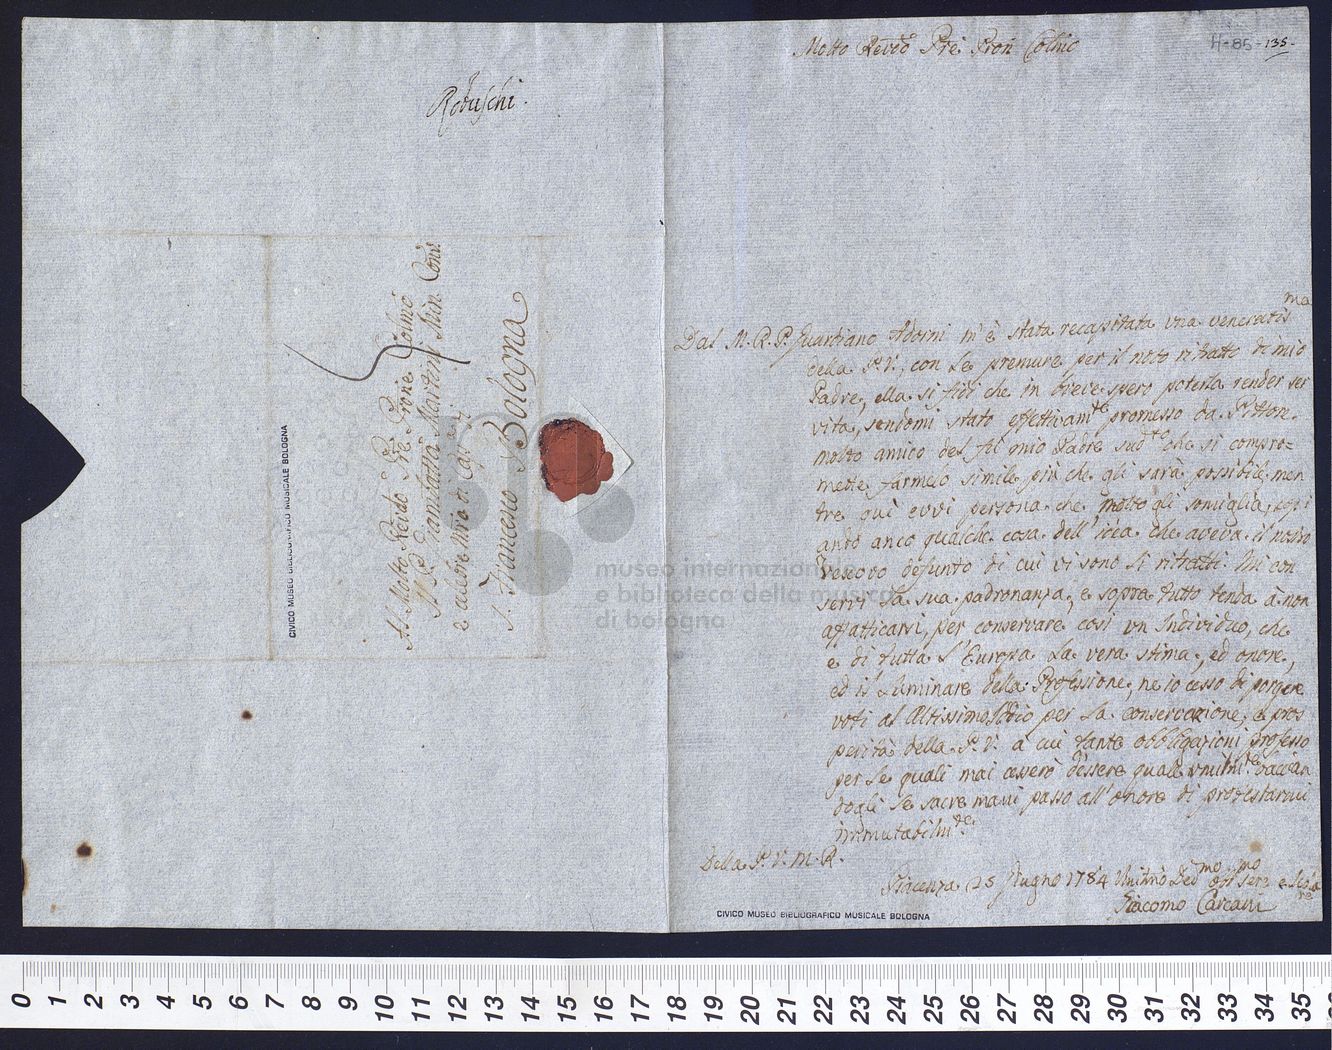 Molto Revdo Pre Pron Colmo
H-85-135-
Reduschi.
Al Molto Revdo Pre Prone Colmo
Il P. Giambatta Martini Min. Conv.
e celebre Mro di Capla
S. Francesco Bologna
CIVICO MUSEO BIBLIOGRAFICO MUSICALE BOLOGNA
Dal M. R. P. Guardiano Adorni m'è stata recapitata una veneratisma
della P. V., con le premure per il noto ritratto di mio
Padre, ella si fidi che in breve spero poterla render ser
vita, sendomi stato effettivamte promesso da Pittore
molto amico del fu mio Padre sudto che si compro=
mette farmelo simile più che gli sarà possibile men
tre quì evvi persona che molto gli somiglia, copi
ando anco qualche cosa dell'idea che aveva il nostro
Vescovo defunto di cui vi sono li ritratti. Mi con
servi la sua padronanza, e sopra tutto tenda à non
affaticarsi, per conservare così un Individuo, che
è di tutta l'Europa la vera stima, ed onore,
ed il luminare della Professione, ne io cesso di porgere
voti al Altissimo Iddio per la conservazione, e pros
perità della P. V. a cui tante obbligazioni professo
per le quali mai cesserò d'essere quale umilmte bacian
dogli le sacre mani passo all'onore di protestarmi
immutabilmte
Della P. V. M. R.
Piacenza 25 Giugno 1784 Umilmo Devmo obbmo Serve e
Giacomo Carcani
CIVICO MUSEO BIBLIOGRAFICO MUSICALE BOLOGNA
museo internazionale
e biblioteca della musica
di bologna
0 1 2 3 4 5 6 7 8 9 10 11 12 13 14 15 16 17 18 19 20 21 22 23 24 25 26 27 28 29 30 31 32 33 34 35